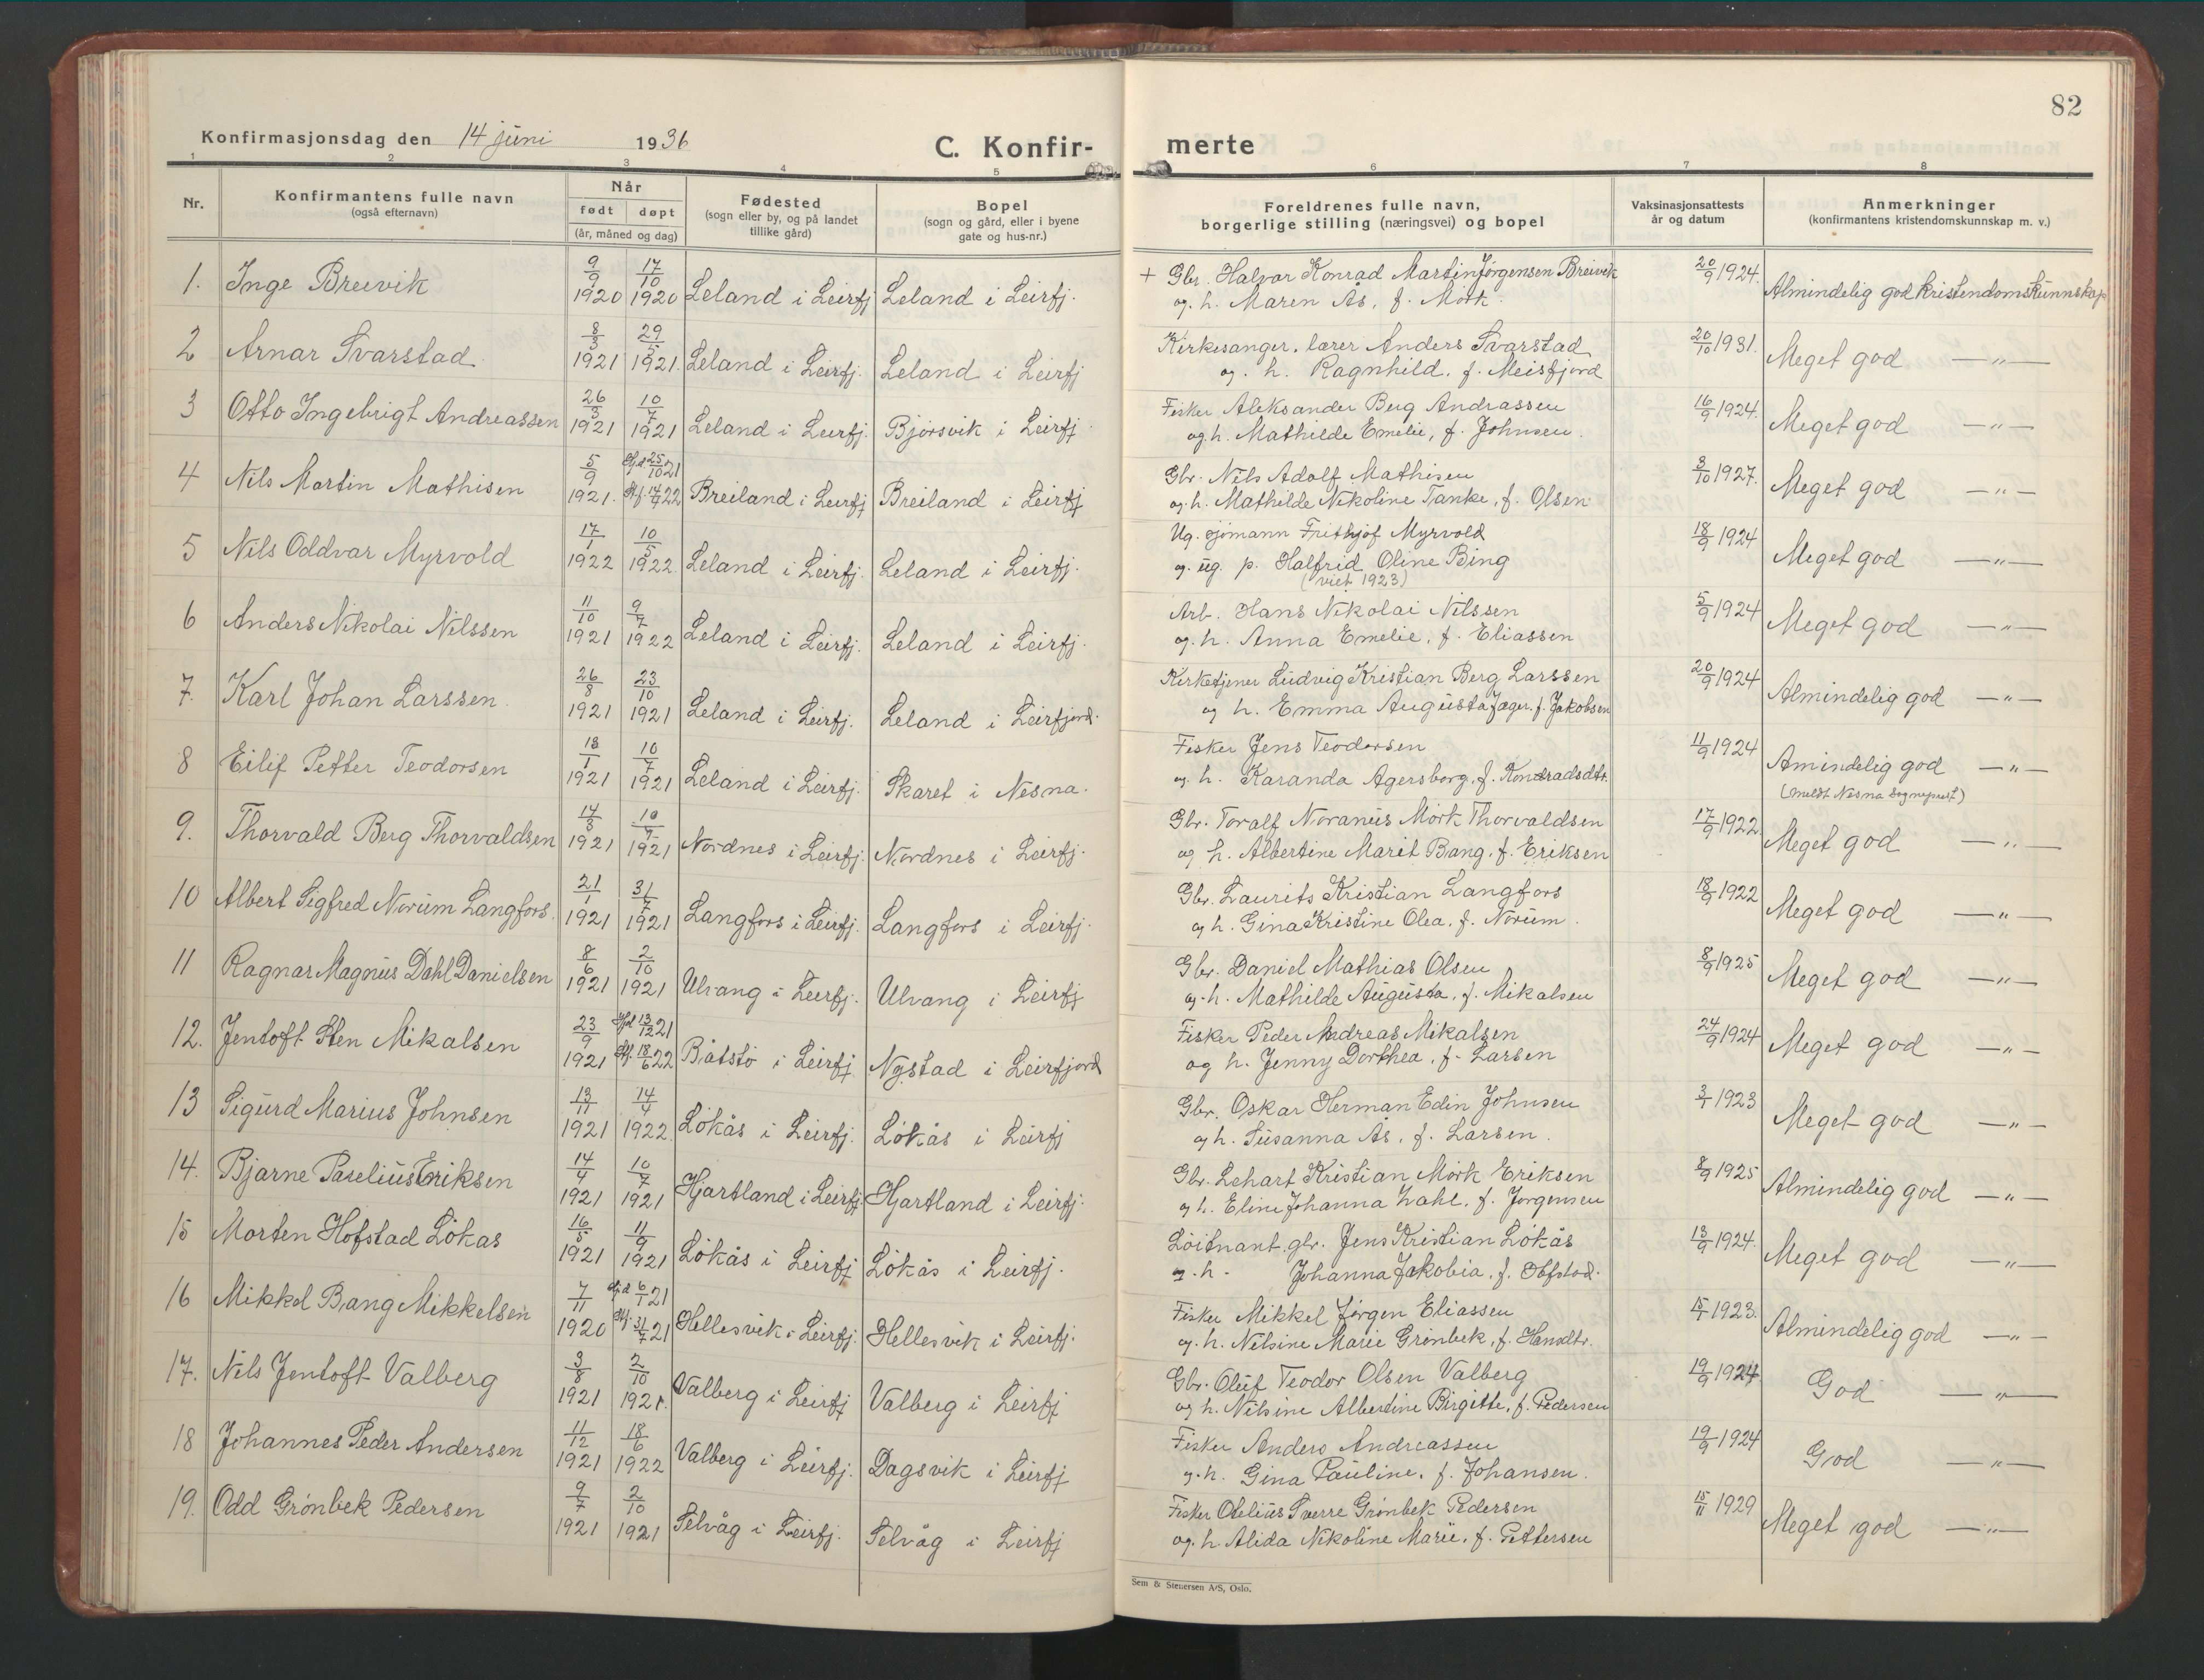 82
Konfirmasjonsdag den 14 juni 1936
C. Konfir-
merte
1 2 3 4 5 6 7 8
Nr.
Konfirmantens fulle navn
(også efternavn)
Når
født døpt
(år, måned og dag)
Fødested
(sogn eller by, og på landet
tillike gård)
Bopel
(sogn og gård, eller i byene
gate og hus-nr.)
Foreldrenes fulle navn,
borgerlige stilling (næringsvei) og bopel
Vaksinasjonsattests
år og datum
Anmerkninger
(konfirmantens kristendomskunnskap m. v.)
1. Inge Breivik 9/9 1920 17/10 1920 Leland i Leirfj Leland i Leirfj. + Gbr. Halvor Konrad Martin Jörgensen Breivik 20/9 1924. Almindelig god kristendomskunnskap
og h. Maren Ås, f. Mörk.
2 Arnar Svarstad 8/3 1921 29/5 1921. Leland i Leirfj. Leland i Leirfj Kirkesanger, lærer Anders Svarstad 20/10 1931. Meget god — " —
og h. Ragnhild, f. Meisfjord
3 Otto Ingebrigt Andreassen 26/3 1921 10/7 1921 Leland i Leirfj. Bjørsvik i Leirfj. Fisker Aleksander Berg Andrassen 16/9 1924. Meget god — " —
og h. Mathilde Emelie, f. Johnsen.
4 Nils Martin Mathisen 5/9 1921. Hj.d 25/10 21 Breiland i Leirfj Breiland i Leirfj Gbr. Nils Adolf Mathisen 3/10 1927. Meget god — " —
og h. Mathilde Nikoline Tanke, f. Olsen
5 Nils Oddvar Myrvold 17/1 1922 10/5 1922. Leland i Leirfj. Leland i Leirfj. Ug. sjömann Frithjof Myrvold 18/9 1924 Meget god — " —
og ug. p. Halfrid Oline Bing
(viet 1923)
6 Anders Nikolai Nilssen 11/10 1921 9/7 1922 Leland i Leirfj. Leland i Leirfj. Arb. Hans Nikolai Nilssen 5/9 1924 Meget god — " —
og h. Anna Emelie, f. Eliassen
7. Karl Johan Larssen. 26/8 1921 23/10 1921 Leland i Leirfj. Leland i Leirfjord. Kirketjener Ludvig Kristian Berg Larssen 20/9 1924 Almindelig god — " —
og h. Emma Augusta Jæger, f. Jakobsen
8 Eilif Petter Teodorsen 18/1 1921 10/7 1921 Leland i Leirfj. Skaret i Nesna. Fisker Jens Teodorsen 11/9 1924 Amindelig god — " —
og h. Karanda Agersborg, f. Kondradsdtr. (meldt Nesna sogneprest)
9. Thorvald Berg Thorvaldsen 14/3 1921 10/7 1921 Nordnes i Leirfj. Nordnes i Leirfj. Gbr. Toralf Noranus Mörk Thorvaldsen 17/9 1922. Meget god — " —
og h. Albertine Marit Bang, f. Eriksen
10 Albert Sigfred Norum Langfors. 21/1 1921 31/7 1921 Langfors i Leirfj. Langfors i Leirfj. Gbr. Laurits Kristian Langfors 18/9 1922 Meget god — " —
og h. Gina Kristine Olea, f. Norum.
11 Ragnar Magnus Dahl Danielsen 8/6 1921 2/10 1921 Ulvang i Leirfj. Ulvang i Leirfj Gbr. Daniel Mathias Olsen 8/9 1925 Meget god — " —
og h. Mathilde Augusta, f. Mikalsen
12. Jentoft Sten Mikalsen 23/9 1921 Hj.d 13/12 21 Båtstö i Leirfj Nystad i Leirfjord Fisker Peder Andreas Mikalsen 24/9 1924 Meget god — " —
og h. Jenny Dorthea, f. Larsen
13 Sigurd Marius Johnsen 13/11 1921 14/4 1922. Lökås i Leirfj. Lökås i Leirfj Gbr. Oskar Herman Edin Johnsen 3/1 1923 Meget god — " —
og h. Susanna As, f. Larsen.
14. Bjarne Paselius Eriksen 14/4 1921 10/7 1921 Hjartland i Leirfj. Hjartland i Leirfj. Gbr. Lehart Kristian Mörk Eriksen 8/9 1925 Almindelig god — " —
og h. Eline Johanna Zahl, f. Jörgensen
15 Morten Hofstad Lökas 16/5 1921 11/9 1921 Lökås i Leirfj Lökås i Leirfj. Löitnant gbr. Jens Kristian Lökås 13/9 1924. Meget god — " —
og h. Johanna Jakobia, f. Hofstad.
16 Mikkel Bang Mikkelsen 7/11 1920 Hj.d 6/1 21 Hellesvik i Leirfj. Hellesvik i Leirfj. Fisker Mikkel Jörgen Eliassen 15/1 1923. Almindelig god — " —
og h. Nelsine Marie Grönbek, f. Hansdtr.
17. Nils Jentoft Valberg 3/8 1921 2/10 1921. Valberg i Leirfj Valberg i Leirfj Gbr. Oluf Teodor Olsen Valberg 19/9 1924 God — " —
og h. Nelsine Albertine Birgitte, f. Pedersen
18 Johannes Peder Andersen 11/12 1921 18/6 1922 Valberg i Leirfj. Dagsvik i Leirfj Fisker Anders Andreassen 19/9 1924 God — " —
og h. Gina Pauline, f. Johansen.
19. Odd Grönbek Pedersen 9/7 1921 2/10 1921 Selvåg i Leirfj. Selvåg i Leirfj Fisker Otelius Sverre Grönbek Pedersen 15/11 1929 Meget god — " —
og h. Alida Nikoline Marie, f. Pettersen
Sem & Stenersen A/S, Oslo.